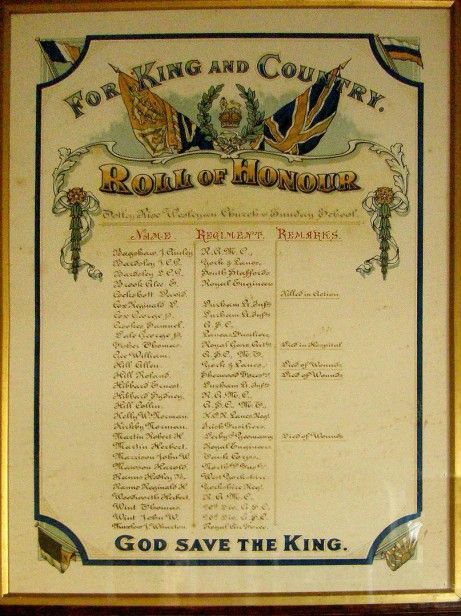 FOR KING AND COUNTRY.
ROLL OF HONOUR
Totley Rise Wesleyan Church & Sunday School.
NAME. REGIMENT. REMARKS.
Bagshaw J. R.A.M.C.,
Bardsley J.C.G. York & Lancs.
Bardsley D.C.G. South Staffords.
Brook Alec E. Royal Engineers
Cockshott David. Killed in Action
Cox Reginald Durham Lt. Infty
Cox George Durham Lt. Infty
Crookes Samuel. A.S.C.
Dale George Lancs. Fusiliers
Fisher Thomas. Royal Garr. Died in Hospital
Gee William. A.S.C. M.T.
Hill Allen. York & Lancs. Died of Wounds
Hill Roland. Sherwood Died of Wounds
Hibbard Ernest. Durham Lt. Infty
Hibbard Sydney. R.A.M.C.
Hill Collin. A.S.C. M.T.
Kelly W. Norman. Lancs. Regt.
Kirkby Norman. Irish Fusiliers
Martin Robert H. Derby Yeomanry Died of Wounds
Martin Herbert. Royal Engineers
Marrison John W. Tank Corps.
Mawson Harold.
Reginald Yorkshire Regt.
Woodworth Herbert. R.A.M.C.
Wint Thomas A.S.C.
Wint John W. A.S.C.
J. Winston Royal Air Force
GOD SAVE THE KING.